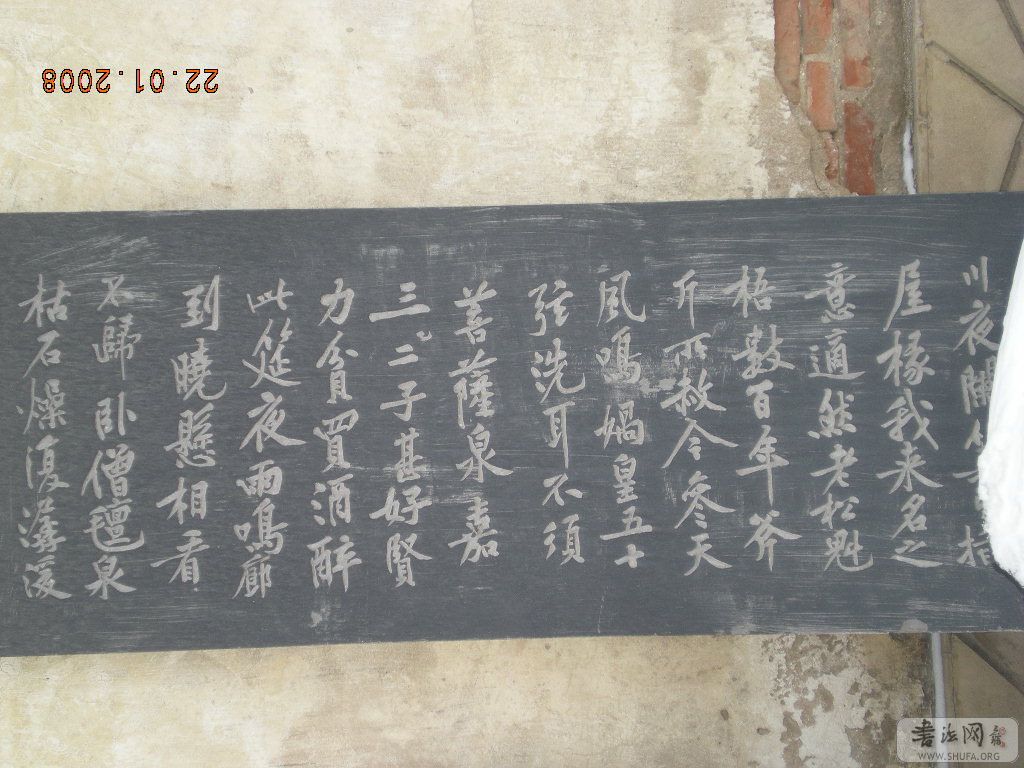 川夜闌
屋椽我来名之
意適然老松魁
梧數百年斧
斤所赦今參天
風鳴媧皇五十
弦洗耳不須
菩薩泉嘉
三二子甚好賢
力貧買酒醉
此筵夜雨鳴廊
到曉懸相看
不歸卧僧氊泉
枯石燥復潺湲
22.01.2008
書法网
WWW.SHUFA.ORG